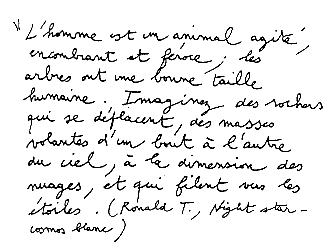 L'homme est un animal agité,
encombrant et féroce ; les
arbres ont une bonne taille
humaine. Imaginez des rochers
qui se déplacent, des masses
volantes d'un bout à l'autre
du ciel, à la dimension des
nuages, et qui filent vers les
étoiles. (Ronald T., Night star-
cosmos blanc)